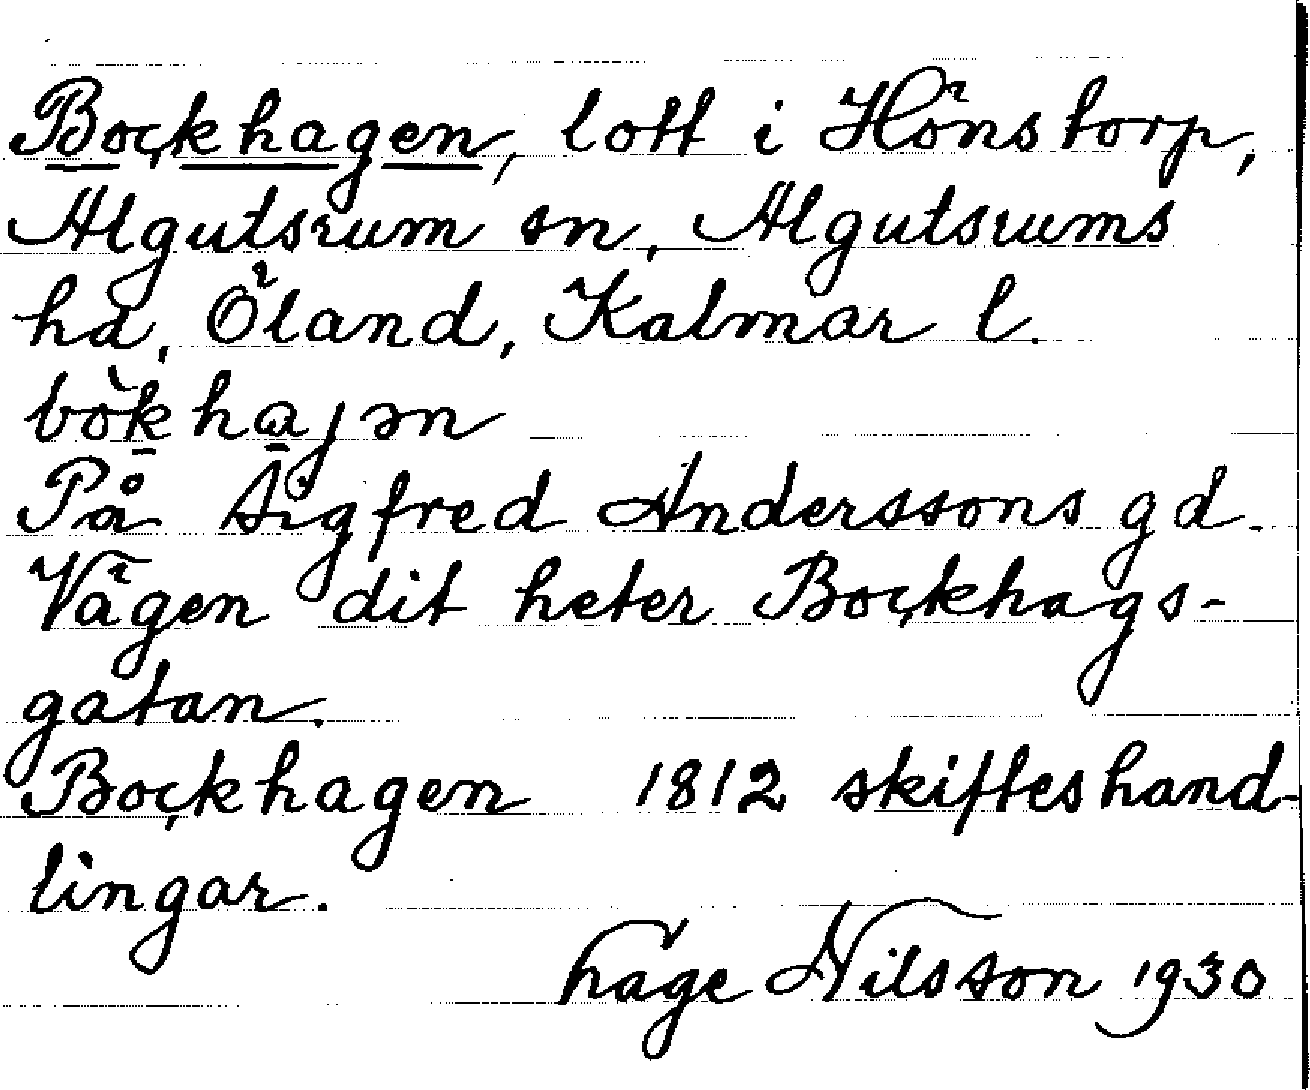 Bockhagen, lott i Hönstorp,
Algutsrum sn, Algutsrums
hd, Öland, Kalmar l.
bòkhajən
På Sigfred Anderssons gd.
Vägen dit heter Bockhags-
gatan.
Bockhagen 1812 skifteshand-
lingar.
Hage Nilsson 1930